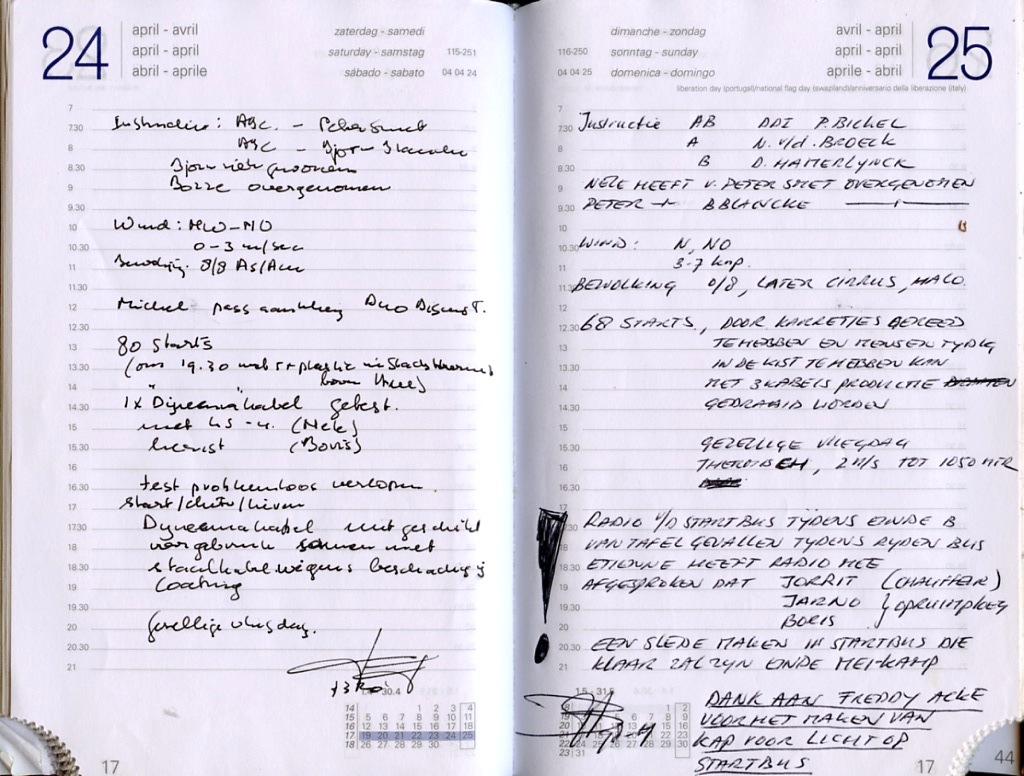 24
april - avril
april - april
abril - aprile
zaterdag - samedi
saturday - samstag 115-251
sábado - sabato 04 04 24
7
7.30
8
8.30
9
9.30
10
10.30
11
11.30
12
12.30
13
13.30
14
14.30
15
15.30
16
16.30
17
17.30
18
18.30
19
19.30
20
20.30
21
Instructie: ABC. - Peter Smet
ABC - Bjorn
Bjorn
Bozze overgenomen
Wind: NW-NO
0-3 m/sec
8/8 As/Acu
Michel pass Duo Discus T.
80 starts
(om 19.30
boven
1x Dyneemakabel getest.
met (Nele)
(Boris)
test probleemloos verlopen
start/chute/lieren
Dyneemakabel niet geschikt
voor gebruik samen met
staalkabel wegens beschadig
coating
Gezellige vliegdag.
1.5 - 30.4
14 1 2 3 4
15 5 6 7 8 9 10 11
16 12 13 14 15 16 17 18
17 19 20 21 22 23 24 25
18 26 27 28 29 30
17
dimanche - zondag
116-250 sonntag - sunday
04 04 25 domenica - domingo
avril - april
april - april
aprile - abril
25
liberation day (portugal)/national flag day (swaziland)/anniversario della liberazione (italy)
7
7.30
8
8.30
9
9.30
10
10.30
11
11.30
12
12.30
13
13.30
14
14.30
15
15.30
16
16.30
17
17.30
18
18.30
19
19.30
20
20.30
21
Instructie AB DDI P. BICKEL
A N. v/d. BROECK
B D. HAMERLYNCK
NELE HEEFT V. PETER SMET OVERGENOMEN
PETER → B BLANCKE
WIND: N, NO
3-7 knp.
BEWOLKING 0/8, LATER CIRRUS, HALO.
68 STARTS, DOOR KARRETJES GEREED
TE HEBBEN EN MENSEN TYDIG
IN DE KIST TE HEBBEN KAN
MET 3 KABELS PRODUCTIE
GEDRAAID WORDEN
GEZELLIGE VLIEGDAG
THERMISCH, 2 M/S TOT 1050 MTR
!
RADIO V/D STARTBUS TYDENS EINDE B
VAN TAFEL GEVALLEN TYDENS RYDEN BUS
ETIENNE HEEFT RADIO MEE
AFGESPROKEN DAT JORRIT (CHAUFFEUR)
JARNO } OPRUIMPLOEG
BORIS
EEN SLEDE MAKEN IN STARTBUS DIE
KLAAR ZAL ZYN EINDE MEI-KAMP
DANK AAN FREDDY ACKE
VOOR HET MAKEN VAN
KAP VOOR LICHT OP
STARTBUS
1.5 - 31.5
17 44